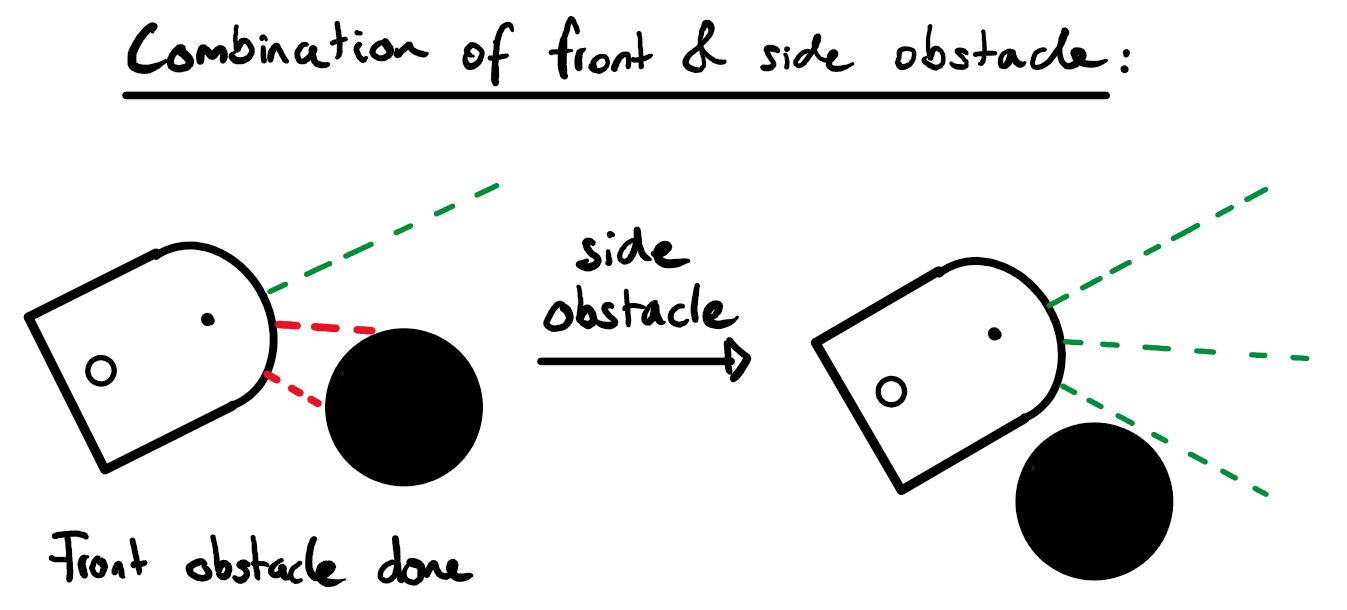 Combination of front & side obstacle:
side
obstacle
Front obstacle done